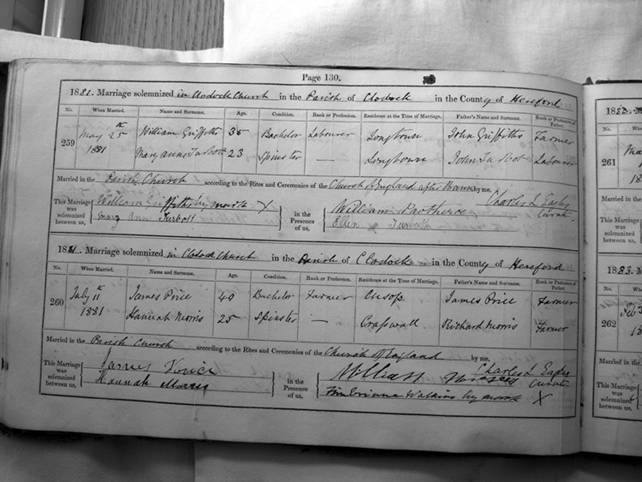 Page 130.
1881. Marriage solemnized in Clodock Church in the Parish of Clodock in the County of Hereford
No. When Married. Name and Surname. Age. Condition. Rank or Profession. Residence at the Time of Marriage. Father's Name and Surname. Rank or Profession of Father.
259 May 25th 1881 William Griffiths 35 Bachelor Labourer Longtown John Griffiths Farmer
Mary Ann 23 Spinster — Longtown John Labourer
Married in the Parish Church according to the Rites and Ceremonies of the Church of England after Banns by me,
Charles L Eagles Curate
This Marriage was solemnized between us, William Griffiths by mark X
Mary Ann Turbott
in the Presence of us, William Prothero
Ellen
1881. Marriage solemnized in Clodock Church in the Parish of Clodock in the County of Hereford
No. When Married. Name and Surname. Age. Condition. Rank or Profession. Residence at the Time of Marriage. Father's Name and Surname. Rank or Profession of Father.
260 July 11th 1881 James Price 40 Bachelor Farmer Cusop James Price Farmer
Hannah Morris 25 Spinster — Craswall Richard Morris Farmer
Married in the Parish Church according to the Rites and Ceremonies of the Church of England by me,
Charles L Eagles Curate
This Marriage was solemnized between us, James Price
Hannah Morris
in the Presence of us, William
Watkins by mark X
No.
261
1883.
262
This Marriage was solemnized between us,